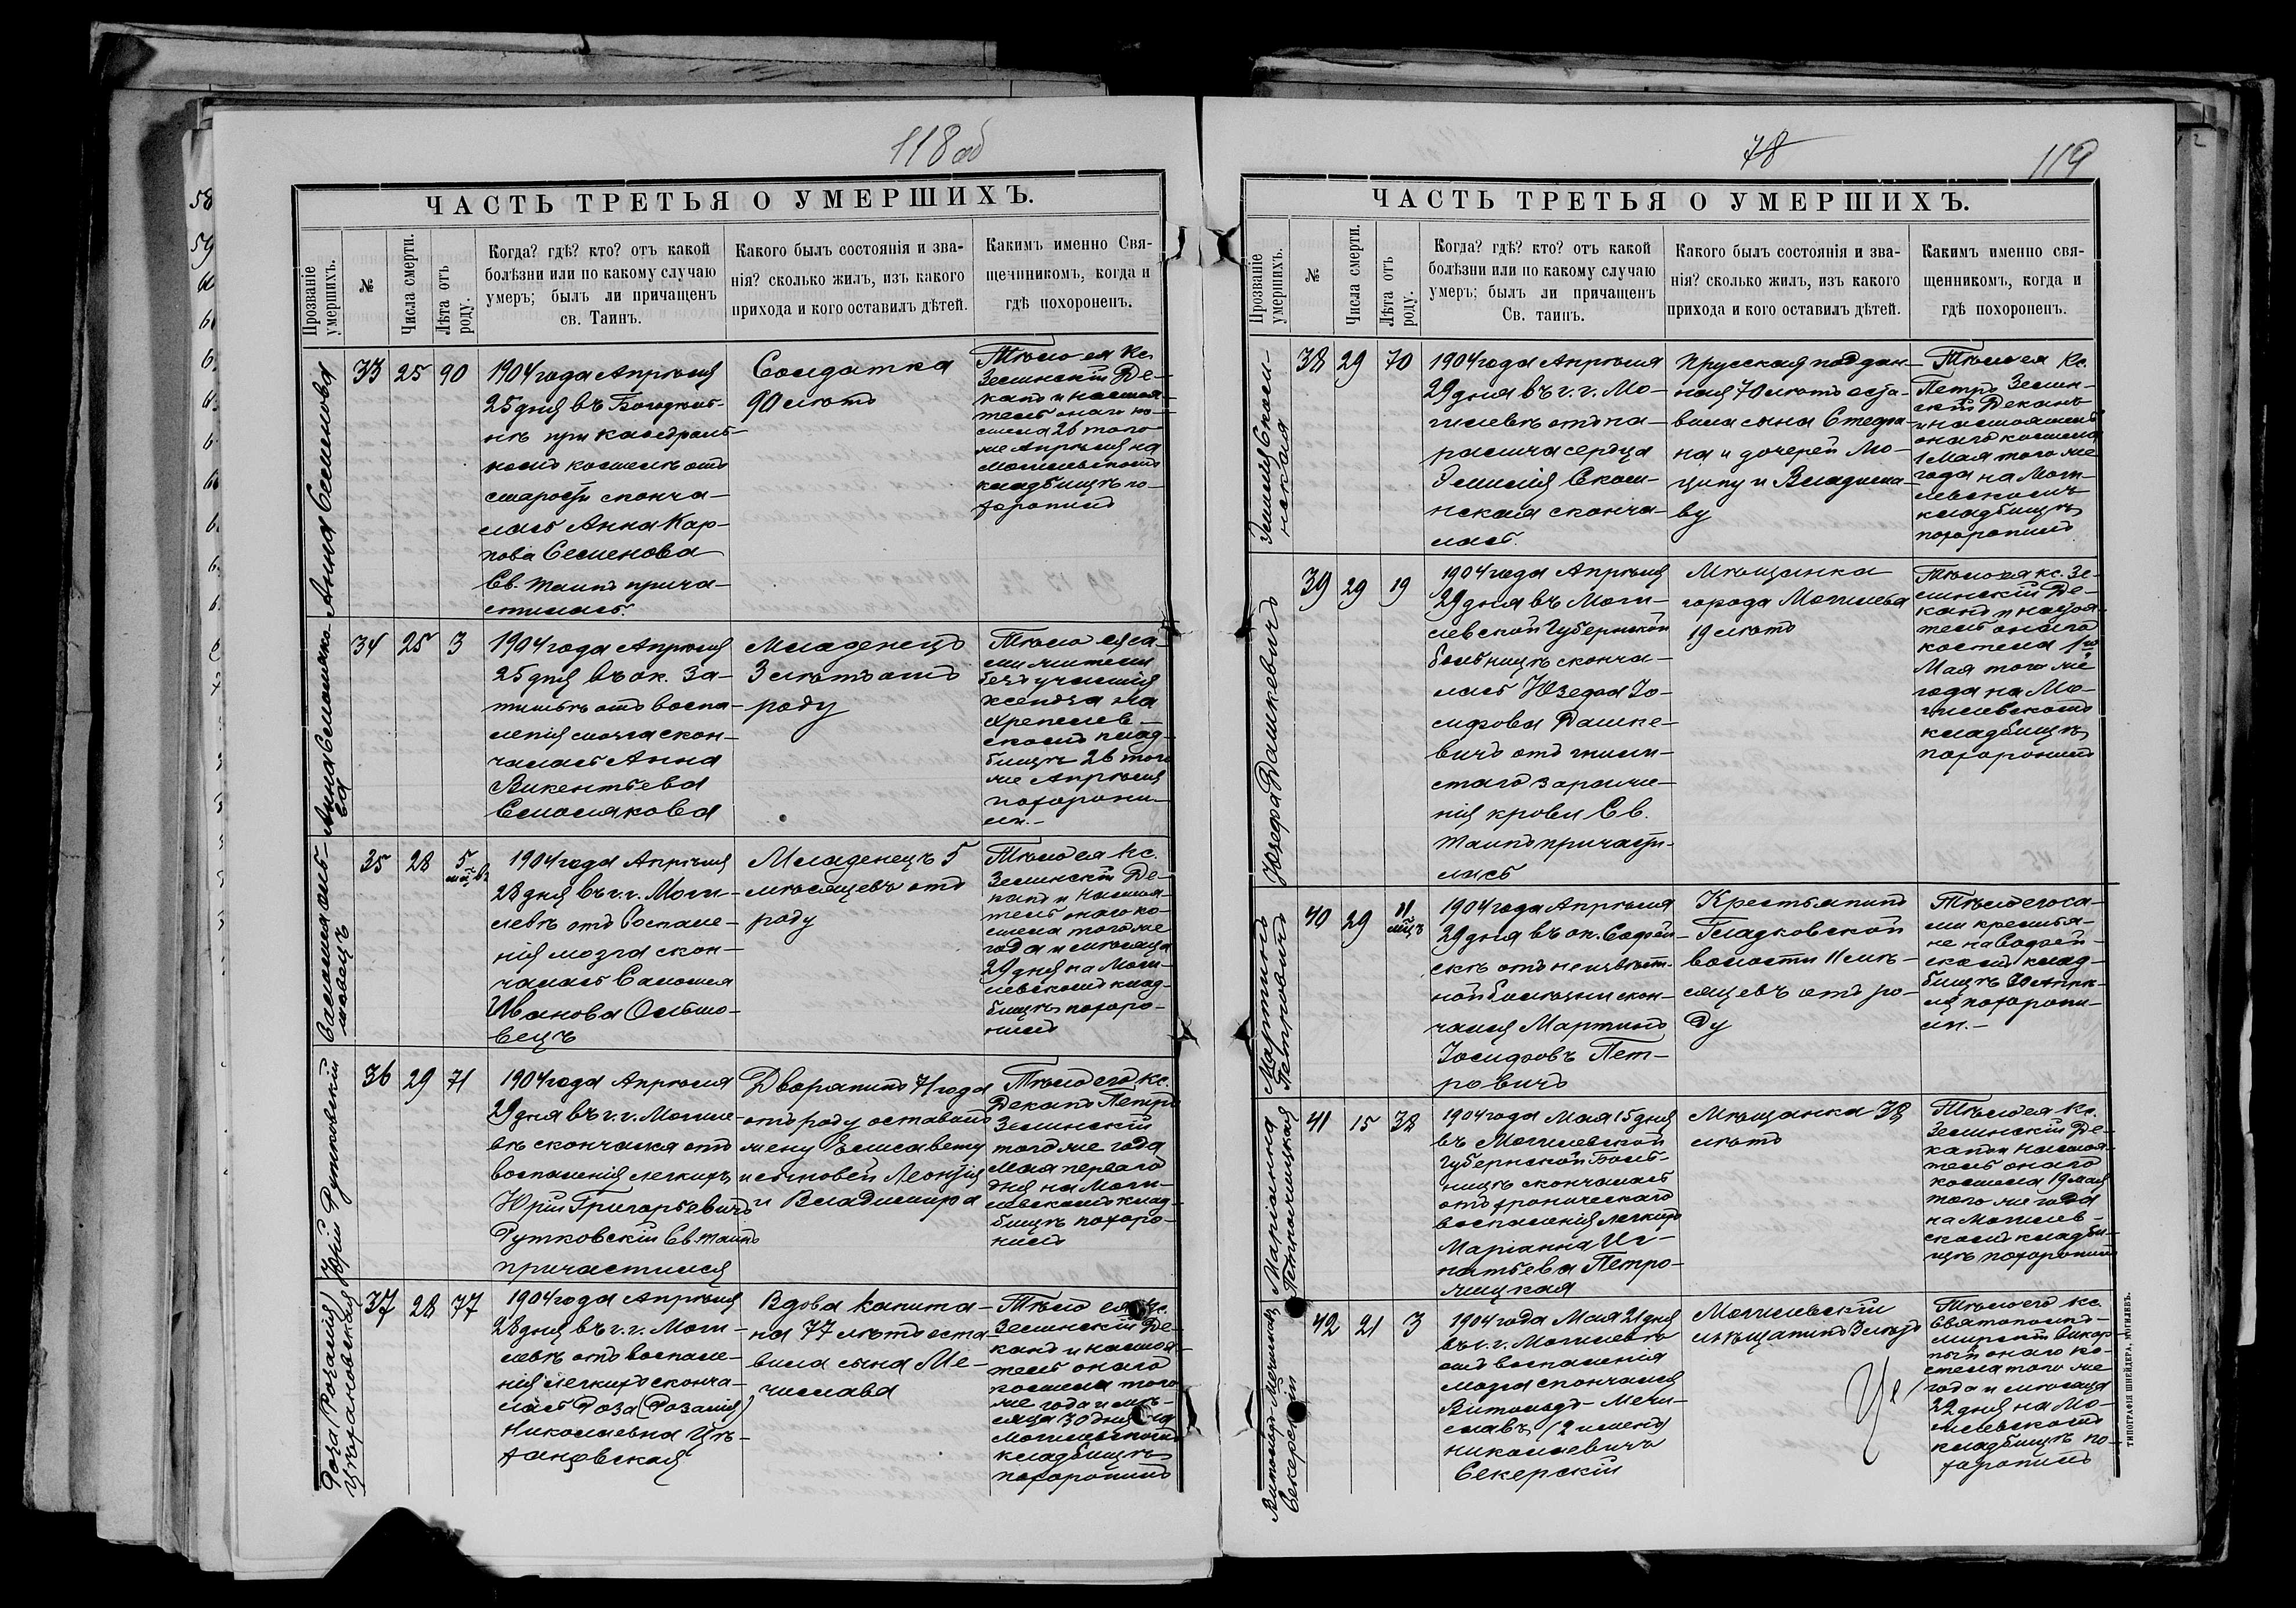 118 об
ЧАСТЬ ТРЕТЬЯ О УМЕРШИХЪ.
Прозваніе умершихъ.
№
Числа смерти.
Лѣта отъ роду.
Когда? гдѣ? кто? отъ какой
болѣзни или по какому случаю
умеръ; былъ ли причащенъ
св. Таинъ.
Какого былъ состоянія и зва-
нія? сколько жилъ, изъ какого
прихода и кого оставилъ дѣтей.
Какимъ именно Свя-
щенникомъ, когда и
гдѣ похороненъ.
Анна Семенова
33
25
90
1904 года Апрѣля
25 дня въ Богадѣль-
нѣ при кафедраль-
номъ костелѣ отъ
старости сконча-
лась Анна Кар-
пова Семенова
Св. Таинъ прича-
стилась.
Солдатка
90 лѣтъ
Тѣло ея Кс.
Зелинскій Де-
канъ и настоя-
тель онаго ко-
стела 26 того
же Апрѣля на
Могилевскомъ
кладбищѣ по-
хоронилъ
Анна Смоляко-
ва
34
25
3
1904 года Апрѣля
25 дня въ ок. За-
тишьѣ отъ воспа-
ленія мозга скон-
чалась Анна
Викентьева
Смолякова
Младенецъ
3 лѣтъ отъ
роду
Тѣло ея са-
ми жители
безъ участія
ксендза на
Хрепелев-
скомъ клад-
бищѣ 26 того
же Апрѣля
похорони-
ли.-
Саломея Оль-
шовецъ
35
28
5
мѣц.въ
1904 года Апрѣля
28 дня въ г. г. Моги-
левѣ отъ воспале-
нія мозга скон-
чалась Саломея
Иванова Ольшо-
вецъ
Младенецъ 5
мѣсяцевъ отъ
роду
Тѣло ея Кс.
Зелинскій Де-
канъ и настоя-
тель онаго ко-
стела того же
года и мѣсяца
29 дня на Моги-
левскомъ клад-
бищѣ похоро-
нилъ
Юрій Рутковскій
36
29
71
1904 года Апрѣля
29 дня въ г. г. Могиле-
вѣ скончался отъ
воспаленія легкихъ
Юрій Григорьевичъ
Рутковскій Св. таинъ
причастился
Дворянинъ 71 года
отъ роду оставилъ
жену Елисавету
и сыновей Леонтія
и Владиміра
Тѣло его Кс.
Деканъ Петръ
Зелинскій
того же года
Мая перваго
дня на Моги-
левскомъ клад-
бищѣ похоро-
нилъ
Роза (Розалія)
Цѣхановская
37
28
77
1904 года Апрѣля
28 дня въ г. г. Моги-
левѣ отъ воспале-
нія легкихъ сконча-
лась Роза (Розалія)
Николаевна Цѣ-
хановская
Вдова капита-
на 77 лѣтъ оста-
вила сына Ме-
числава
Тѣло ея Кс.
Зелинскій Де-
канъ и настоя-
тель онаго
костела того
же года и мѣ-
сяца 30 дня на
Могилевскомъ
кладбищѣ
похоронилъ
78
119
ЧАСТЬ ТРЕТЬЯ О УМЕРШИХЪ.
Прозваніе умершихъ.
№
Числа смерти.
Лѣта отъ роду.
Когда? гдѣ? кто? отъ какой
болѣзни или по какому случаю
умеръ; былъ ли причащенъ
Св. таинъ.
Какого былъ состоянія и зва-
нія? сколько жилъ, изъ какого
прихода и кого оставилъ дѣтей.
Какимъ именно свя-
щенникомъ, когда и
гдѣ похороненъ.
38
29
70
1904 года Апрѣля
29 дня въ г. г. Мо-
гилевѣ отъ па-
ралича сердца
нская сконча-
лась.
Прусская поддан-
ная 70 лѣтъ оста-
вила сына Стефа-
на и дочерей Мо-
ву
Тѣло ея Кс.
Петръ Зелин-
скій Деканъ
и настоятель
онаго костела
1 Мая того же
года на Моги-
левскомъ
кладбищѣ
похоронилъ
Юзефа Дашкевичъ
39
29
19
1904 года Апрѣля
29 дня въ Моги-
левской Губернской
больницѣ сконча-
лась Юзефа Іо-
сифова Дашке-
вичъ отъ гнили-
стаго зараже-
нія крови Св.
таинъ причасти-
лась
Мѣщанка
города Могилева
19 лѣтъ
Тѣло ея кс. Зе-
линскій Де-
канъ и настоя-
тель онаго
костела 1го
Мая того же
года на Мо-
гилевскомъ
кладбищѣ
похоронилъ
Мартинъ
Петровичъ
40
29
11
мѣцъ
1904 года Апрѣля
29 дня въ ок. Софей-
скѣ отъ неизвѣст-
ной болѣзни скон-
чался Мартинъ
Іосифовъ Пет-
ровичъ
Крестьянинъ
Гладковской
волости 11 мѣ-
сяцевъ отъ ро-
ду
Тѣло его са-
ми крестья-
не на Софей-
скомъ клад-
бищѣ 30 Апрѣ-
ля похорони-
ли.-
Маріанна
Петрожицкая
41
15
38
1904 года Мая 15 дня
въ Могилевской
Губернской Боль-
ницѣ скончалась
отъ хроническаго
воспаленія легкихъ
Маріанна Иг-
натьева Петро-
жицкая
Мѣщанка 38
лѣтъ
Тѣло ея Кс.
Зелинскій Де-
канъ и настоя-
тель онаго
костела 19 мая
того же года
на Могилев-
скомъ кладби-
щѣ похоронилъ
Витольдъ-Мечиславъ
Секерскій
42
21
3
1904 года Мая 21 дня
въ г. г. Могилевѣ
отъ воспаленія
мозга скончался
Витольдъ-Мечи-
славъ (2 именъ)
Николаевичъ
Секерскій
Могилевскій
мѣщанинъ 3 лѣтъ
Тѣло его Кс.
Святополкъ-
Мирскій викар-
ный онаго ко-
стела того же
года и мѣсяца
22 дня на Мо-
гилевскомъ
кладбищѣ по-
хоронилъ
ТИПОГРАФІЯ ШНЕЙДЕРА, МОГИЛЕВЪ.